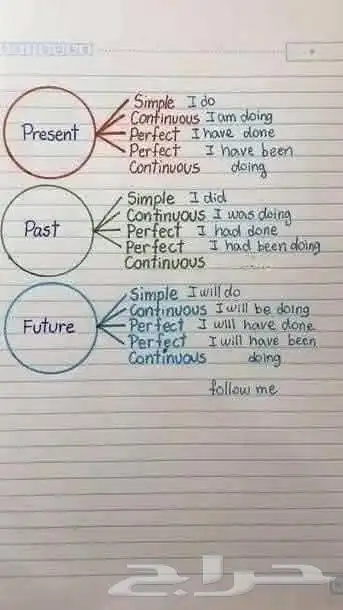 Present
Simple I do
Continuous I am doing
Perfect I have done
Perfect I have been
Continuous doing
Past
Simple I did
Continuous I was doing
Perfect I had done
Perfect I had been doing
Continuous
Future
Simple I will do
Continuous I will be doing
Perfect I will have done
Perfect I will have been
Continuous doing
follow me
حراج